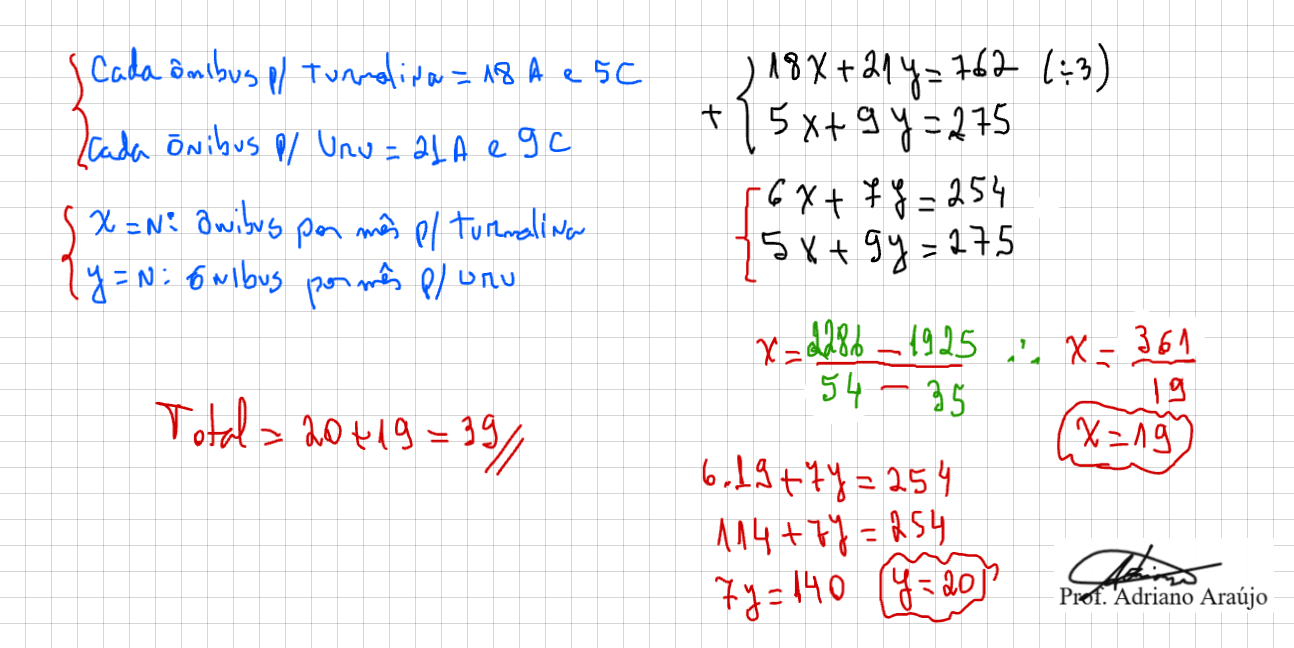 Cada ônibus p/ Turmalina = 18 A e 5C
Cada ônibus p/ Uru = 21 A e 9C
x = Nº ônibus por mês p/ turmalina
y = Nº ônibus por mês p/ uru
Total = 20+19 = 39//
18x + 21y = 762 (÷3)
+
5x + 9y = 275
6x + 7y = 254
5x + 9y = 275
x = 2286 - 1925 / 54 - 35 ∴ x = 361 / 19
x = 19
6.19 + 7y = 254
114 + 7y = 254
7y = 140 y = 20
Adriano
Prof. Adriano Araújo